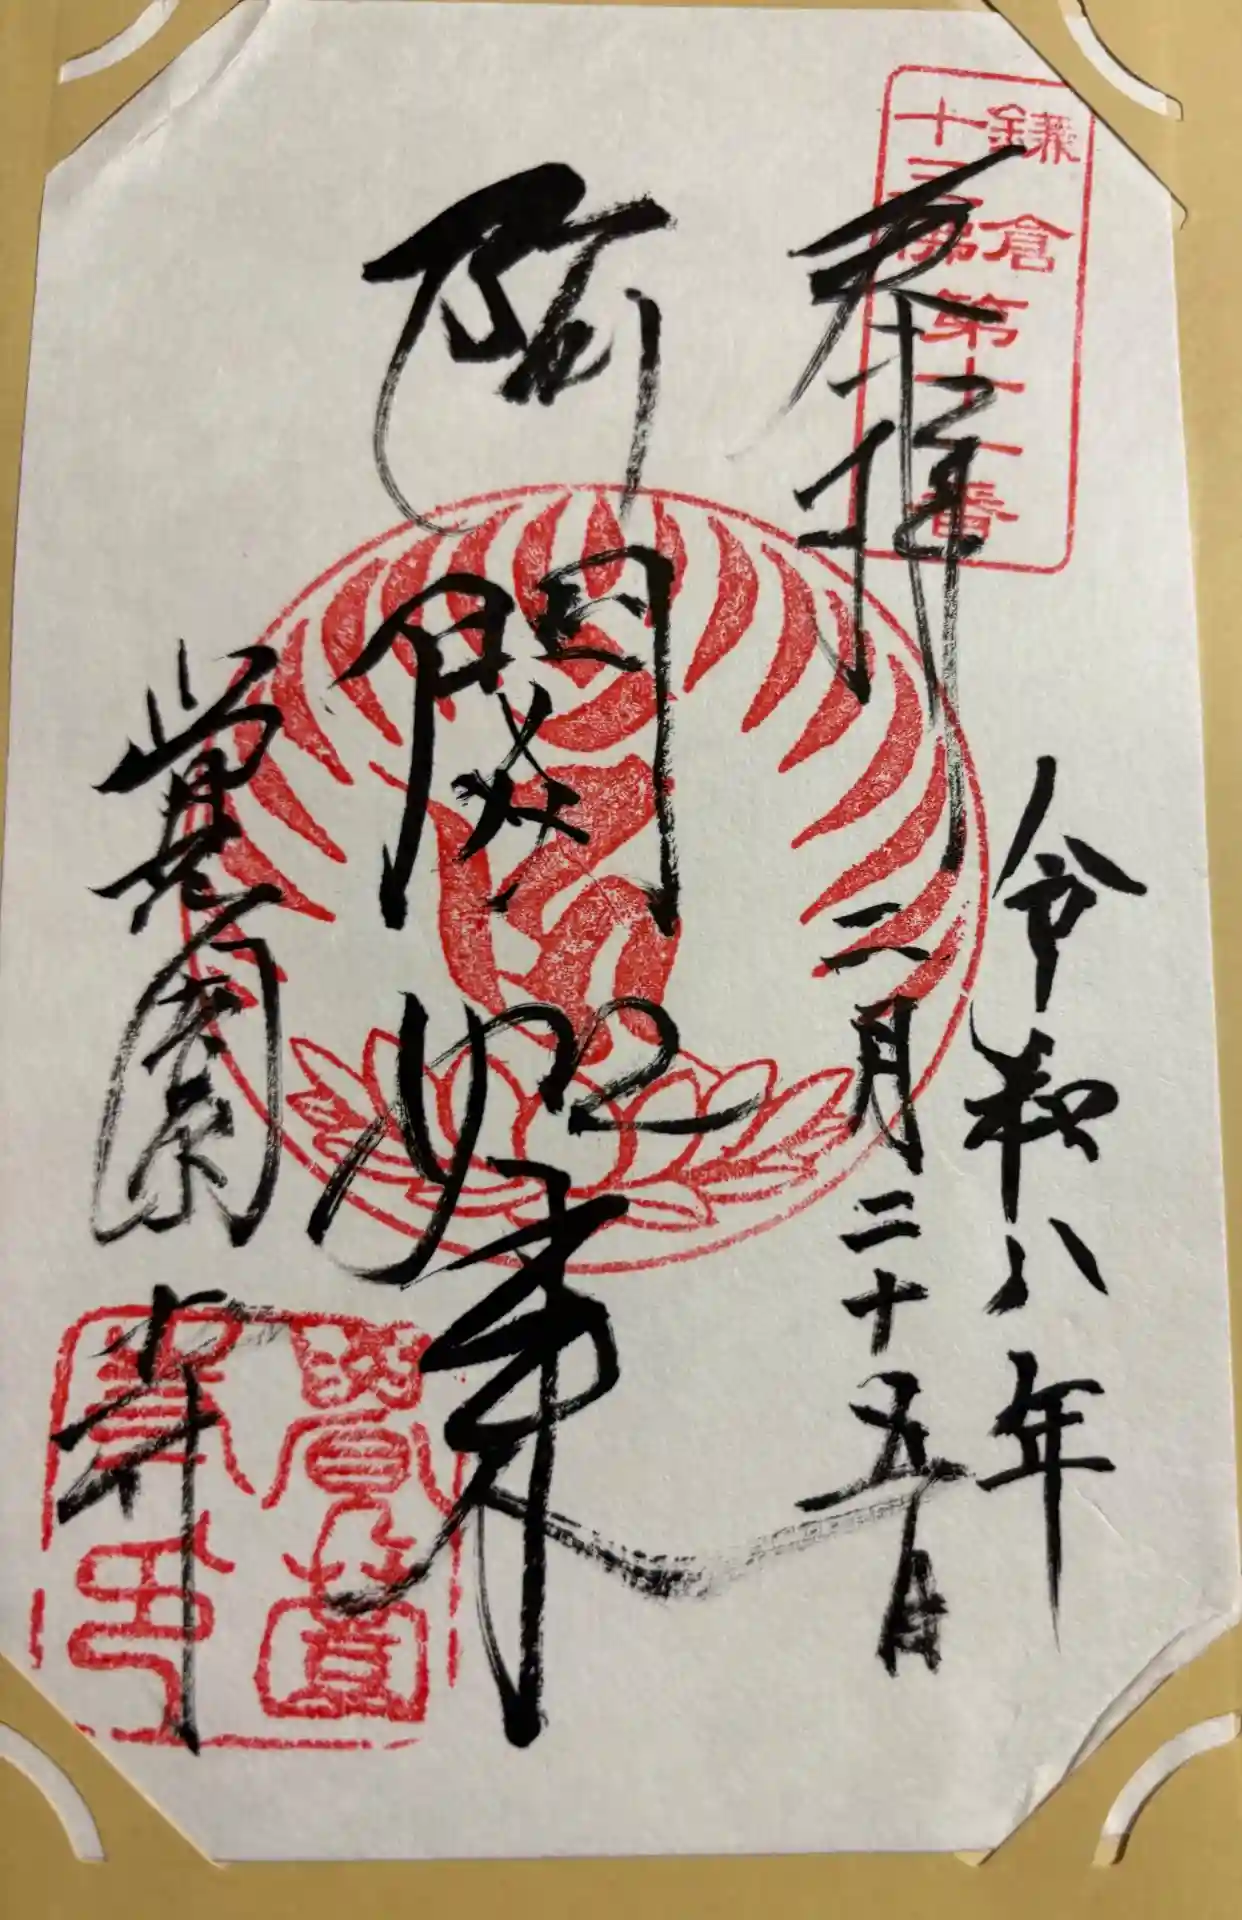 鎌倉
十三佛
第十一番
奉拝
令和八年
二月二十五日
阿閦如来
覚園寺
覺園
寺印